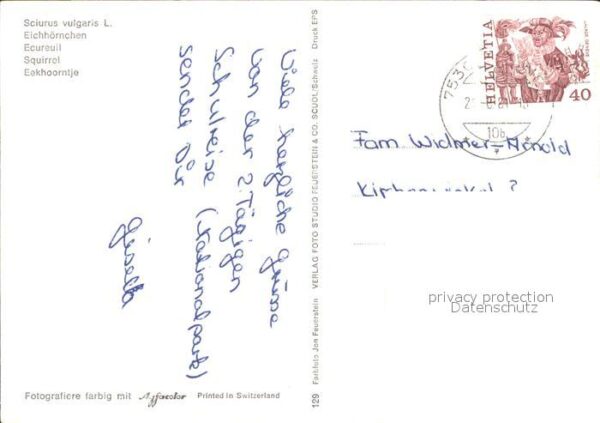 Sciurus vulgaris L.
Eichhörnchen
Ecureuil
Squirrel
Eekhoorntje
Viele herzliche Grüsse
von der 2 Tägigen
Schulreise (Nationalpark)
sendet Dir
Gisella
Fotografiere farbig mit Agfacolor Printed in Switzerland
129 Farbfoto Jon Feuerstein VERLAG FOTO STUDIO FEUERSTEIN & CO. SCUOL/Schweiz Druck EPS
HELVETIA
40
10b
Fam. Widmer-Arnold
privacy protection
Datenschutz